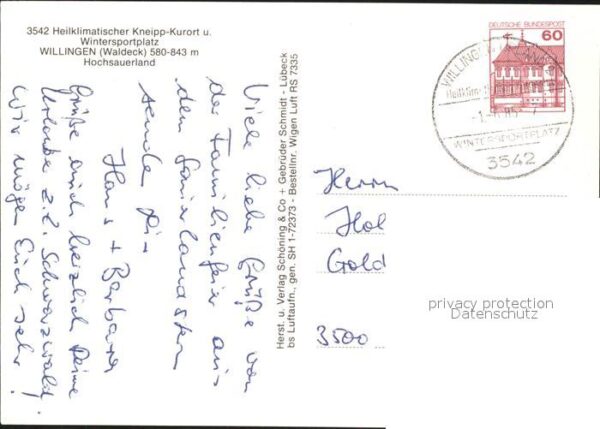 3542 Heilklimatischer Kneipp-Kurort u.
Wintersportplatz
WILLINGEN (Waldeck) 580-843 m
Hochsauerland
Viele liebe Grüße von
der Familienfeier aus
dem Sauerland
senden Dir
Hans + Barbara
Grüße auch herzlich Deine
Urlaube z.Z. Schwarzwald
Wir mögen Euch sehr!
Herst. u. Verlag Schöning & Co. + Gebrüder Schmidt - Lübeck
bs Luftaufn., gen. SH 1-72373 - Bestellnr. Wigen Luft RS 7335
DEUTSCHE BUNDESPOST
60
WILLINGEN
Heilklim.
WINTERSPORTPLATZ
3542
Herrn
Hol
Gold
3500
privacy protection
Datenschutz